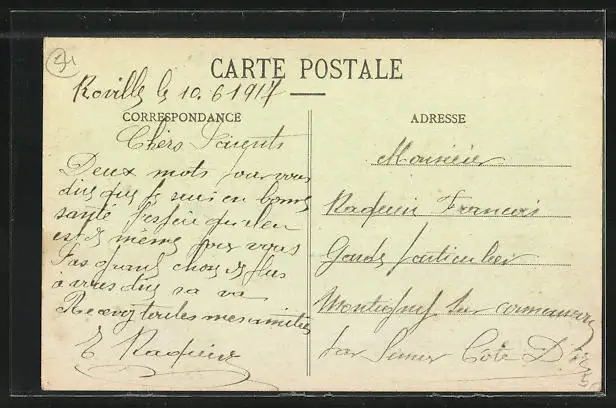 CARTE POSTALE
Roville le 10.6.1917
CORRESPONDANCE
Chers Parents
Deux mots pour vous
dire que je suis en bonne
santé j'espère qu'il en
est de même pour vous
Pas grand chose de plus
à vous dire sa va
Recevez toutes mes amitiés
E Raquin
ADRESSE
Monsieur
Raquin Francois
Garde particulier
Montigny sur armançon
par Semur Cote D'or